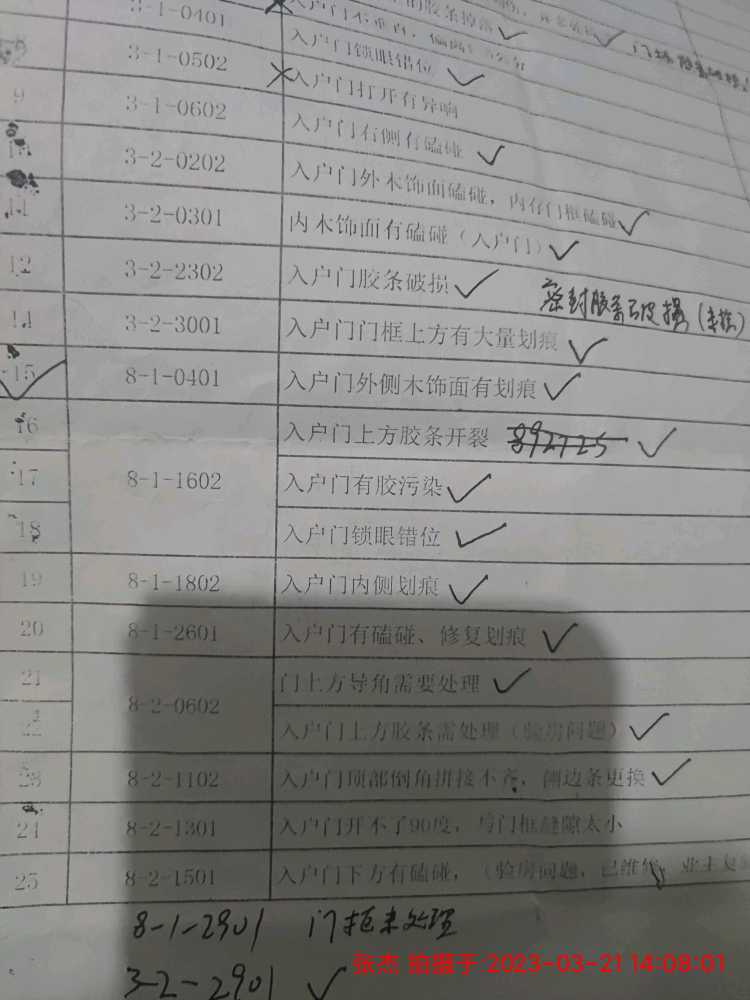 3-1-0401
入户门锁眼错位
3-1-0502
入户门打开有异响
9 3-1-0602
入户门右侧有磕碰
3-2-0202
入户门外木饰面磕碰，内存门框磕碰
11 3-2-0301
内木饰面有磕碰（入户门）
12 3-2-2302 入户门胶条破损
密封胶条已破损
14 3-2-3001 入户门门框上方有大量划痕
15 8-1-0401 入户门外侧木饰面有划痕
16 入户门上方胶条开裂
17 8-1-1602 入户门有胶污染
18 入户门锁眼错位
19 8-1-1802 入户门内侧划痕
20 8-1-2601 入户门有磕碰、修复划痕
21 门上方导角需要处理
8-2-0602
22 入户门上方胶条需处理（验房问题）
23 8-2-1102 入户门顶部倒角拼接不齐，侧边条更换
24 8-2-1301 入户门开不了90度，与门框缝隙太小
25 8-2-1501 入户门下方有磕碰，（验房问题，已维修，业主
8-1-2901 门框未处理
3-2-2901
张杰 拍摄于 2023-03-21 14:08:01